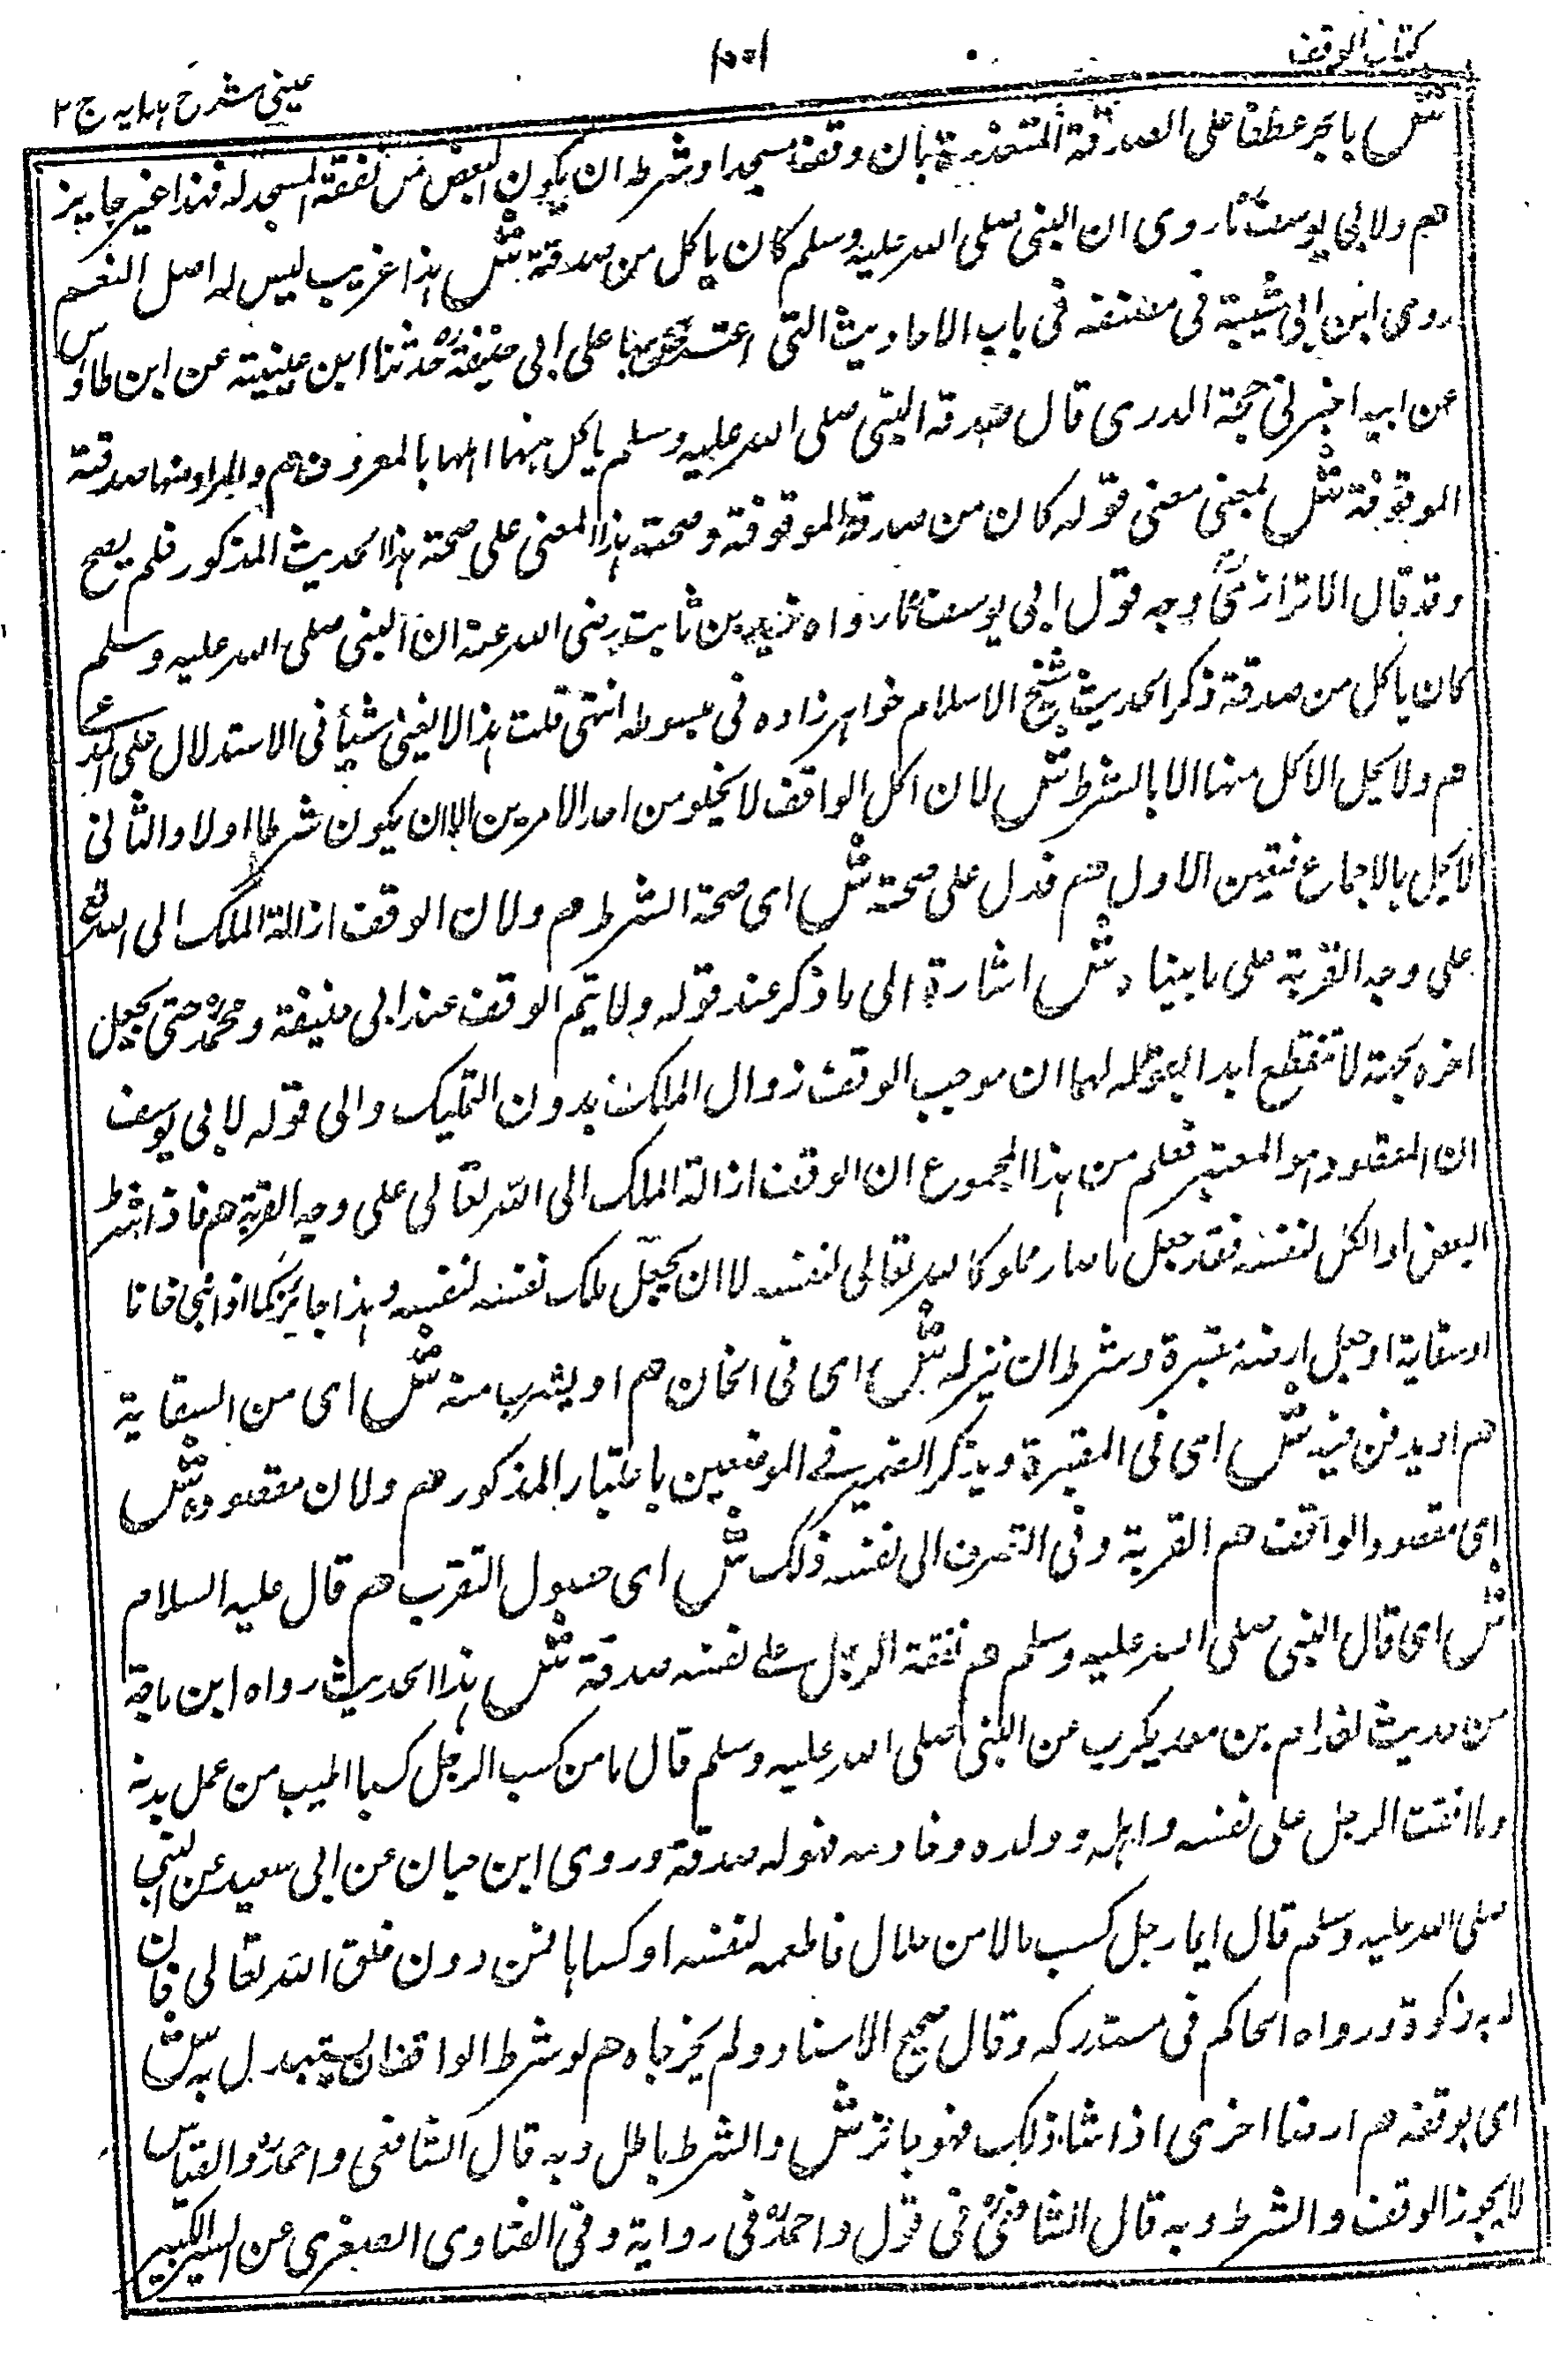 كتاب الوقف
١٠٠١
عینی شرح ہدایہ ج ٢
ش بالجر عطفا على الصدقة المنفذة بان وقف مسجدا وشرط ان يكون البعض من نفقة المسجد له فهذا غير جايز
هم ولابي يوسفؒ ما روى ان النبي صلى الله عليه وسلم كان ياكل من صدقته ش هذا غريب ليس له اصل النعم
روى ابن ابي شيبة في مصنفه في باب الاحاديث التي اعترض بها على ابي حنيفةؒ حدثنا ابن عيينة عن ابن طاوس
عن ابيه اخبرني حجة المدري قال صدقة النبي صلى الله عليه وسلم ياكل منها اهلها بالمعروف هم والمراد منها صدقته
الموقوفة ش يعني معنى قوله كان من صدقة الموقوفة وصحة هذا المعنى على صحة هذا الحديث المذكور فلم يصح
وقد قال الاترازيؒ وجه قول ابي يوسفؒ ما رواه زيد بن ثابت رضي الله عنه ان النبي صلى الله عليه وسلم
كان ياكل من صدقة ذكر الحديث شيخ الاسلام خواهر زاده في مبسوطه انتهى قلت هذا لا يغني شيأ في الاستدلال على المدعى
هم ولا يحل الاكل منها الا بالشرط ش لان اكل الواقف لا يخلو من احد الامرين اما ان يكون شرطا اولا والثاني
لا يحل بالاجماع فتعين الاول هم فدل على صحته ش اى صحة الشرط هم ولان الوقف ازالة الملك الى الله تعالى
على وجه القربة على ما بيناه ش اشارة الى ما ذكر عند قوله ولا يتم الوقف عند ابى حنيفة ومحمدؒ حتى يجعل
اخره بجهة لا تنقطع ابدا بقوله لهما ان موجب الوقف زوال الملك بدون التمليك والى قوله لابي يوسف
ان المقصود هو المعتبر فعلم من هذا المجموع ان الوقف ازالة الملك الى الله تعالى على وجه القربة هم فاذا شرط
البعض او الكل لنفسه فقد جعل ما صار مملوكا لله تعالى لنفسه لا ان يجعل ملك نفسه لنفسه وهذا جايز كما اذا بنى خانا
او سقاية او جعل ارضه مقبرة وشرط ان ينزله ش اى فى الخان هم او يشرب منه ش اى من السقاية
هم او يدفن فيه ش اى فى المقبرة ويذكر الضمير في الموضعين باعتبار المذكور هم ولان مقصوده ش
اى مقصود الواقف هم القربة وفى التصرف الى نفسه ذلك ش اى حصول التقرب هم قال عليه السلام
ش اى قال النبي صلى الله عليه وسلم هم نفقة الرجل على نفسه صدقة ش هذا الحديث رواه ابن ماجة
من حديث المقدام بن معديكرب عن النبي صلى الله عليه وسلم قال ما من كسب الرجل كسبا اطيب من عمل يده
وما انفقت الرجل على نفسه واهله وولده وخادمه فهو له صدقة وروى ابن حبان عن ابي سعيد عن النبي
صلى الله عليه وسلم قال ايما رجل كسب مالا من حلال فاطعمه لنفسه او كساها فمن دون خلق الله تعالى فان
له به زكوة ورواه الحاكم فى مستدركه وقال صحيح الاسناد ولم يخرجاه هم لو شرط الواقف ان يستبدل به ش
اى بوقفه هم ارضا اخرى اذا شاء ذلك فهو جائز ش والشرط باطل وبه قال الشافعى واحمدؒ والقياس
لا يجوز الوقف والشرط وبه قال الشافعىؒ فى قول واحمدؒ فى رواية وفى الفتاوى الصغرى عن السير الكبير